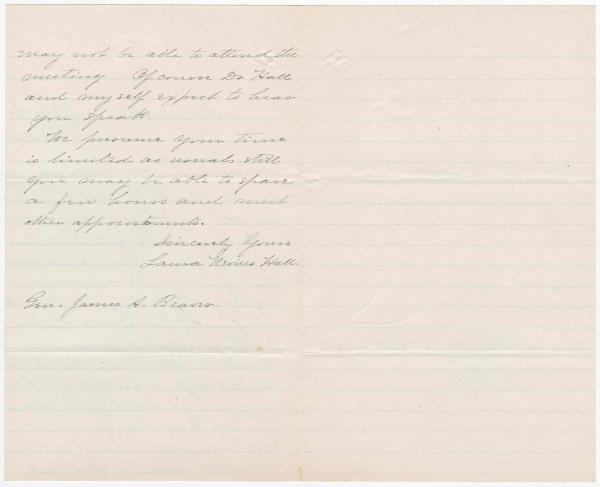 may not be able to attend the
meeting. Of course Dr Hall
and myself expect to hear
you speak.
We presume your time
is limited as usual, still
you may be able to spare
a few hours and meet
other appointments.
Sincerely Yours
Laura Hall.
Gen. James A. Beaver.